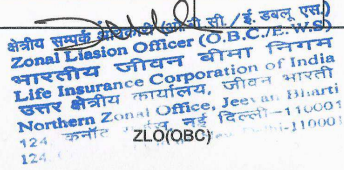 क्षेत्रीय सम्पर्क अधिकारी (ओ.बी.सी./ई. डबलू एस.)
Zonal Liasion Officer (O.B.C./E.W.S)
भारतीय जीवन बीमा निगम
Life Insurance Corporation of India
उत्तर क्षेत्रीय कार्यालय, जीवन भारती
Northern Zonal Office, Jeevan Bharti
124, कनॉट नई दिल्ली-110001
124, Delhi-110001
ZLO(OBC)